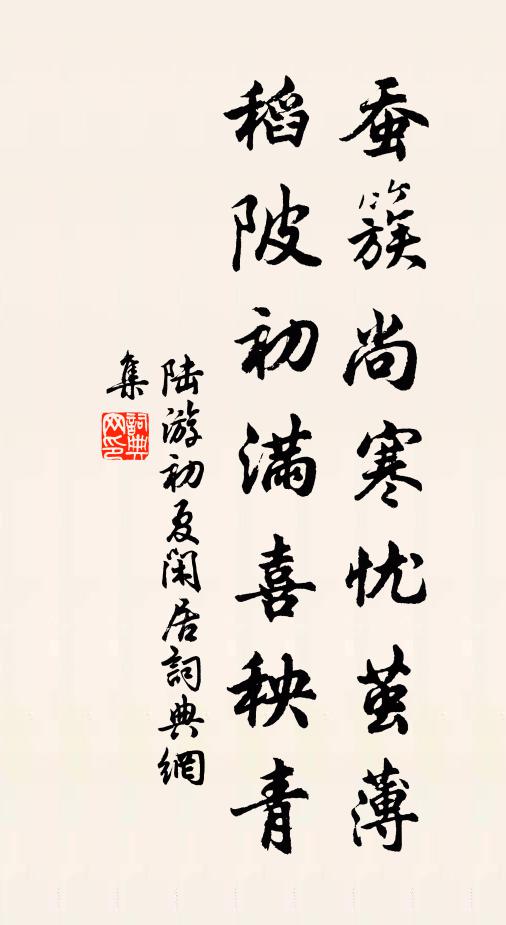 蚕簇尚寒忧茧薄
稻陂初满喜秧青
陆游初夏闲居詞典網
集
詞典网印